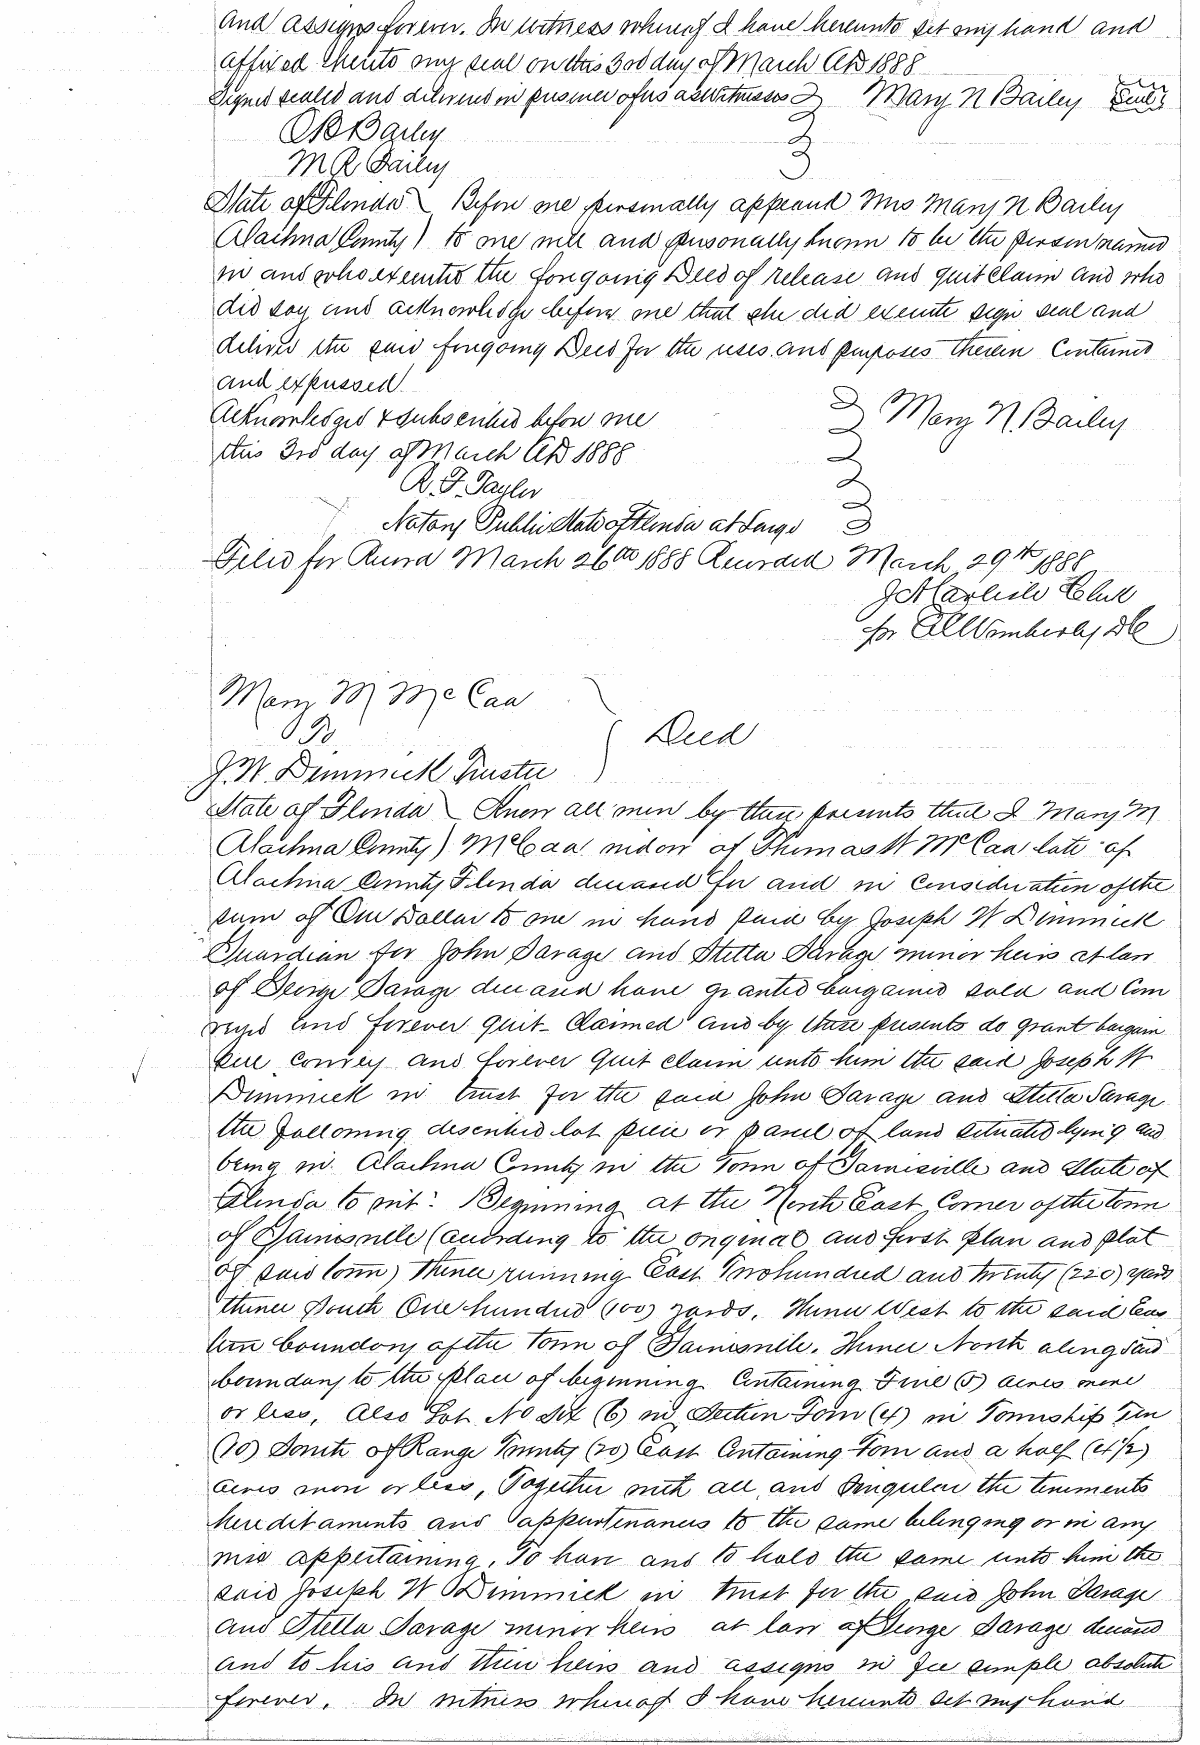 and assigns forever. In witness whereof I have hereunto set my hand and
affixed thereto my seal on this 3rd day of March AD 1888
Signed sealed and delivered in presence of us as witnesses Mary N Bailey Seal
Bailey
M R Bailey
State of Florida Before me personally appeared Mrs Mary N Bailey
Alachua County) to me well and personally known to be the person named
in and who executed the foregoing Deed of release and quit claim and who
did say and acknowledge before me that she did execute sign seal and
deliver the said foregoing Deed for the uses and purposes therein contained
and expressed.
Acknowledged & subscribed before me Mary N. Bailey
this 3rd day of March AD 1888
R. F. Taylor
Notary Public State of Florida at Large
Filed for Record March 26th 1888 Recorded March 29th 1888
J A Carlisle Clerk
pr Wimberly DC
Mary M McCaa
To
Deed
J. W. Dimmick Trustee
State of Florida Know all men by these presents that I Mary M
Alachua County) McCaa widow of Thomas W McCaa late of
Alachua County Florida deceased for and in consideration of the
sum of One Dollar to me in hand paid by Joseph W Dimmick
Guardian for John Savage and Stella Savage minor heirs at law
of George Savage deceased have granted bargained sold and con
veyed and forever quit claimed and by these presents do grant bargain
sell convey and forever quit claim unto him the said Joseph W
Dimmick in trust for the said John Savage and Stella Savage
the following described lot piece or parcel of land situated lying and
being in Alachua County in the Town of Gainesville and State of
Florida to wit: Beginning at the North East Corner of the town
of Gainesville (according to the original and first plan and plat
of said town) thence running East Two hundred and twenty (220) yards
thence South One hundred (100) yards. Thence West to the said Eas
tern boundary of the town of Gainesville. Thence North along said
boundary to the place of beginning Containing Five (5) acres more
or less, Also Lot No Six (6) in Section Four (4) in Township Ten
(10) South of Range Twenty (20) East Containing Four and a half (4½)
acres more or less, Together with all and singular the tenements
hereditaments and appurtenances to the same belonging or in any
wise appertaining. To have and to hold the same unto him the
said Joseph W Dimmick in trust for the said John Savage
and Stella Savage minor heirs at law of George Savage deceased
and to his and their heirs and assigns in fee simple absolute
forever. In witness whereof I have hereunto set my hand